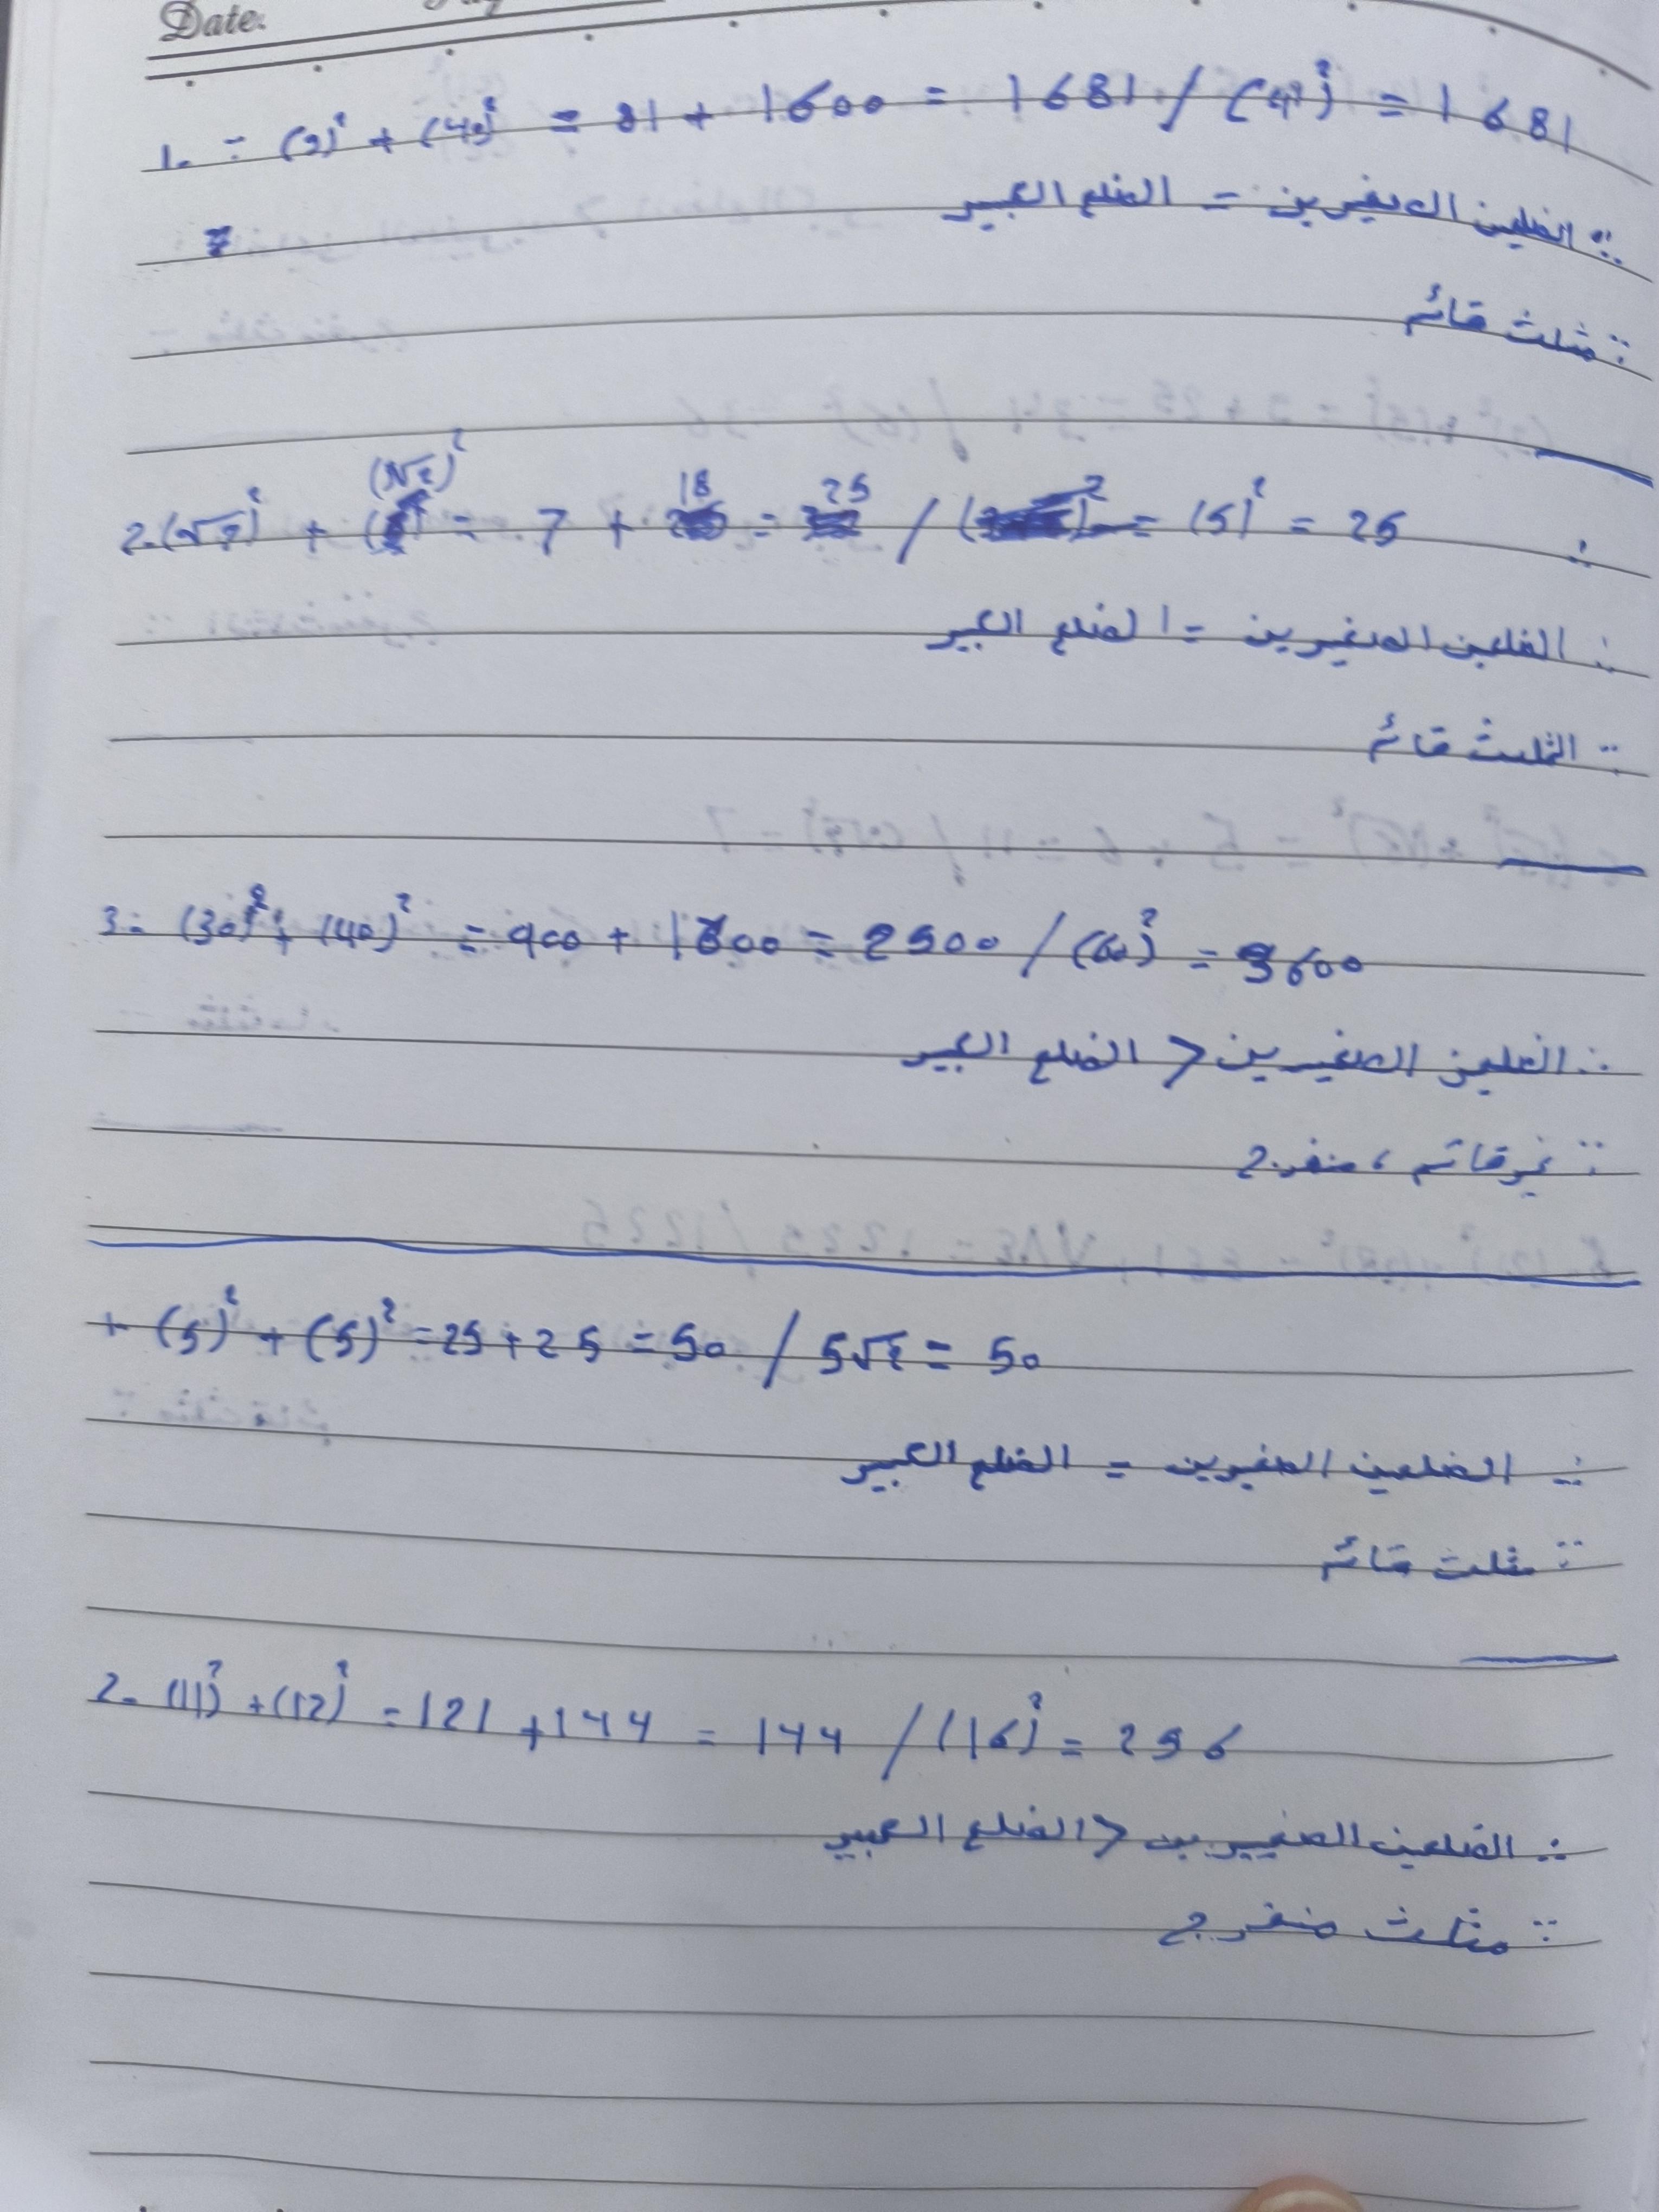 Date.
1. = (9)² + (40)² = 81 + 1600 = 1681 / (41)² = 1681
∵ الضلعين الصغيرين = الضلع الكبير
∴ مثلث قائم
2. (√7)² + (3√2)² = 7 + 18 = 25 / = (5)² = 25
∵ الضلعين الصغيرين = الضلع الكبير
∴ المثلث قائم
3- (30)² + (40)² = 900 + 1600 = 2500 / (60)² = 3600
∵ الضلعين الصغيرين < الضلع الكبير
∴ غير قائم ، منفرج
(5)² + (5)² = 25 + 25 = 50 / 5√2 = 50
∵ الضلعين الصغيرين = الضلع الكبير
∴ مثلث قائم
2- (11)² + (12)² = 121 + 144 = 144 / (16)² = 256
∵ الضلعين الصغيرين < الضلع الكبير
∴ مثلث منفرج